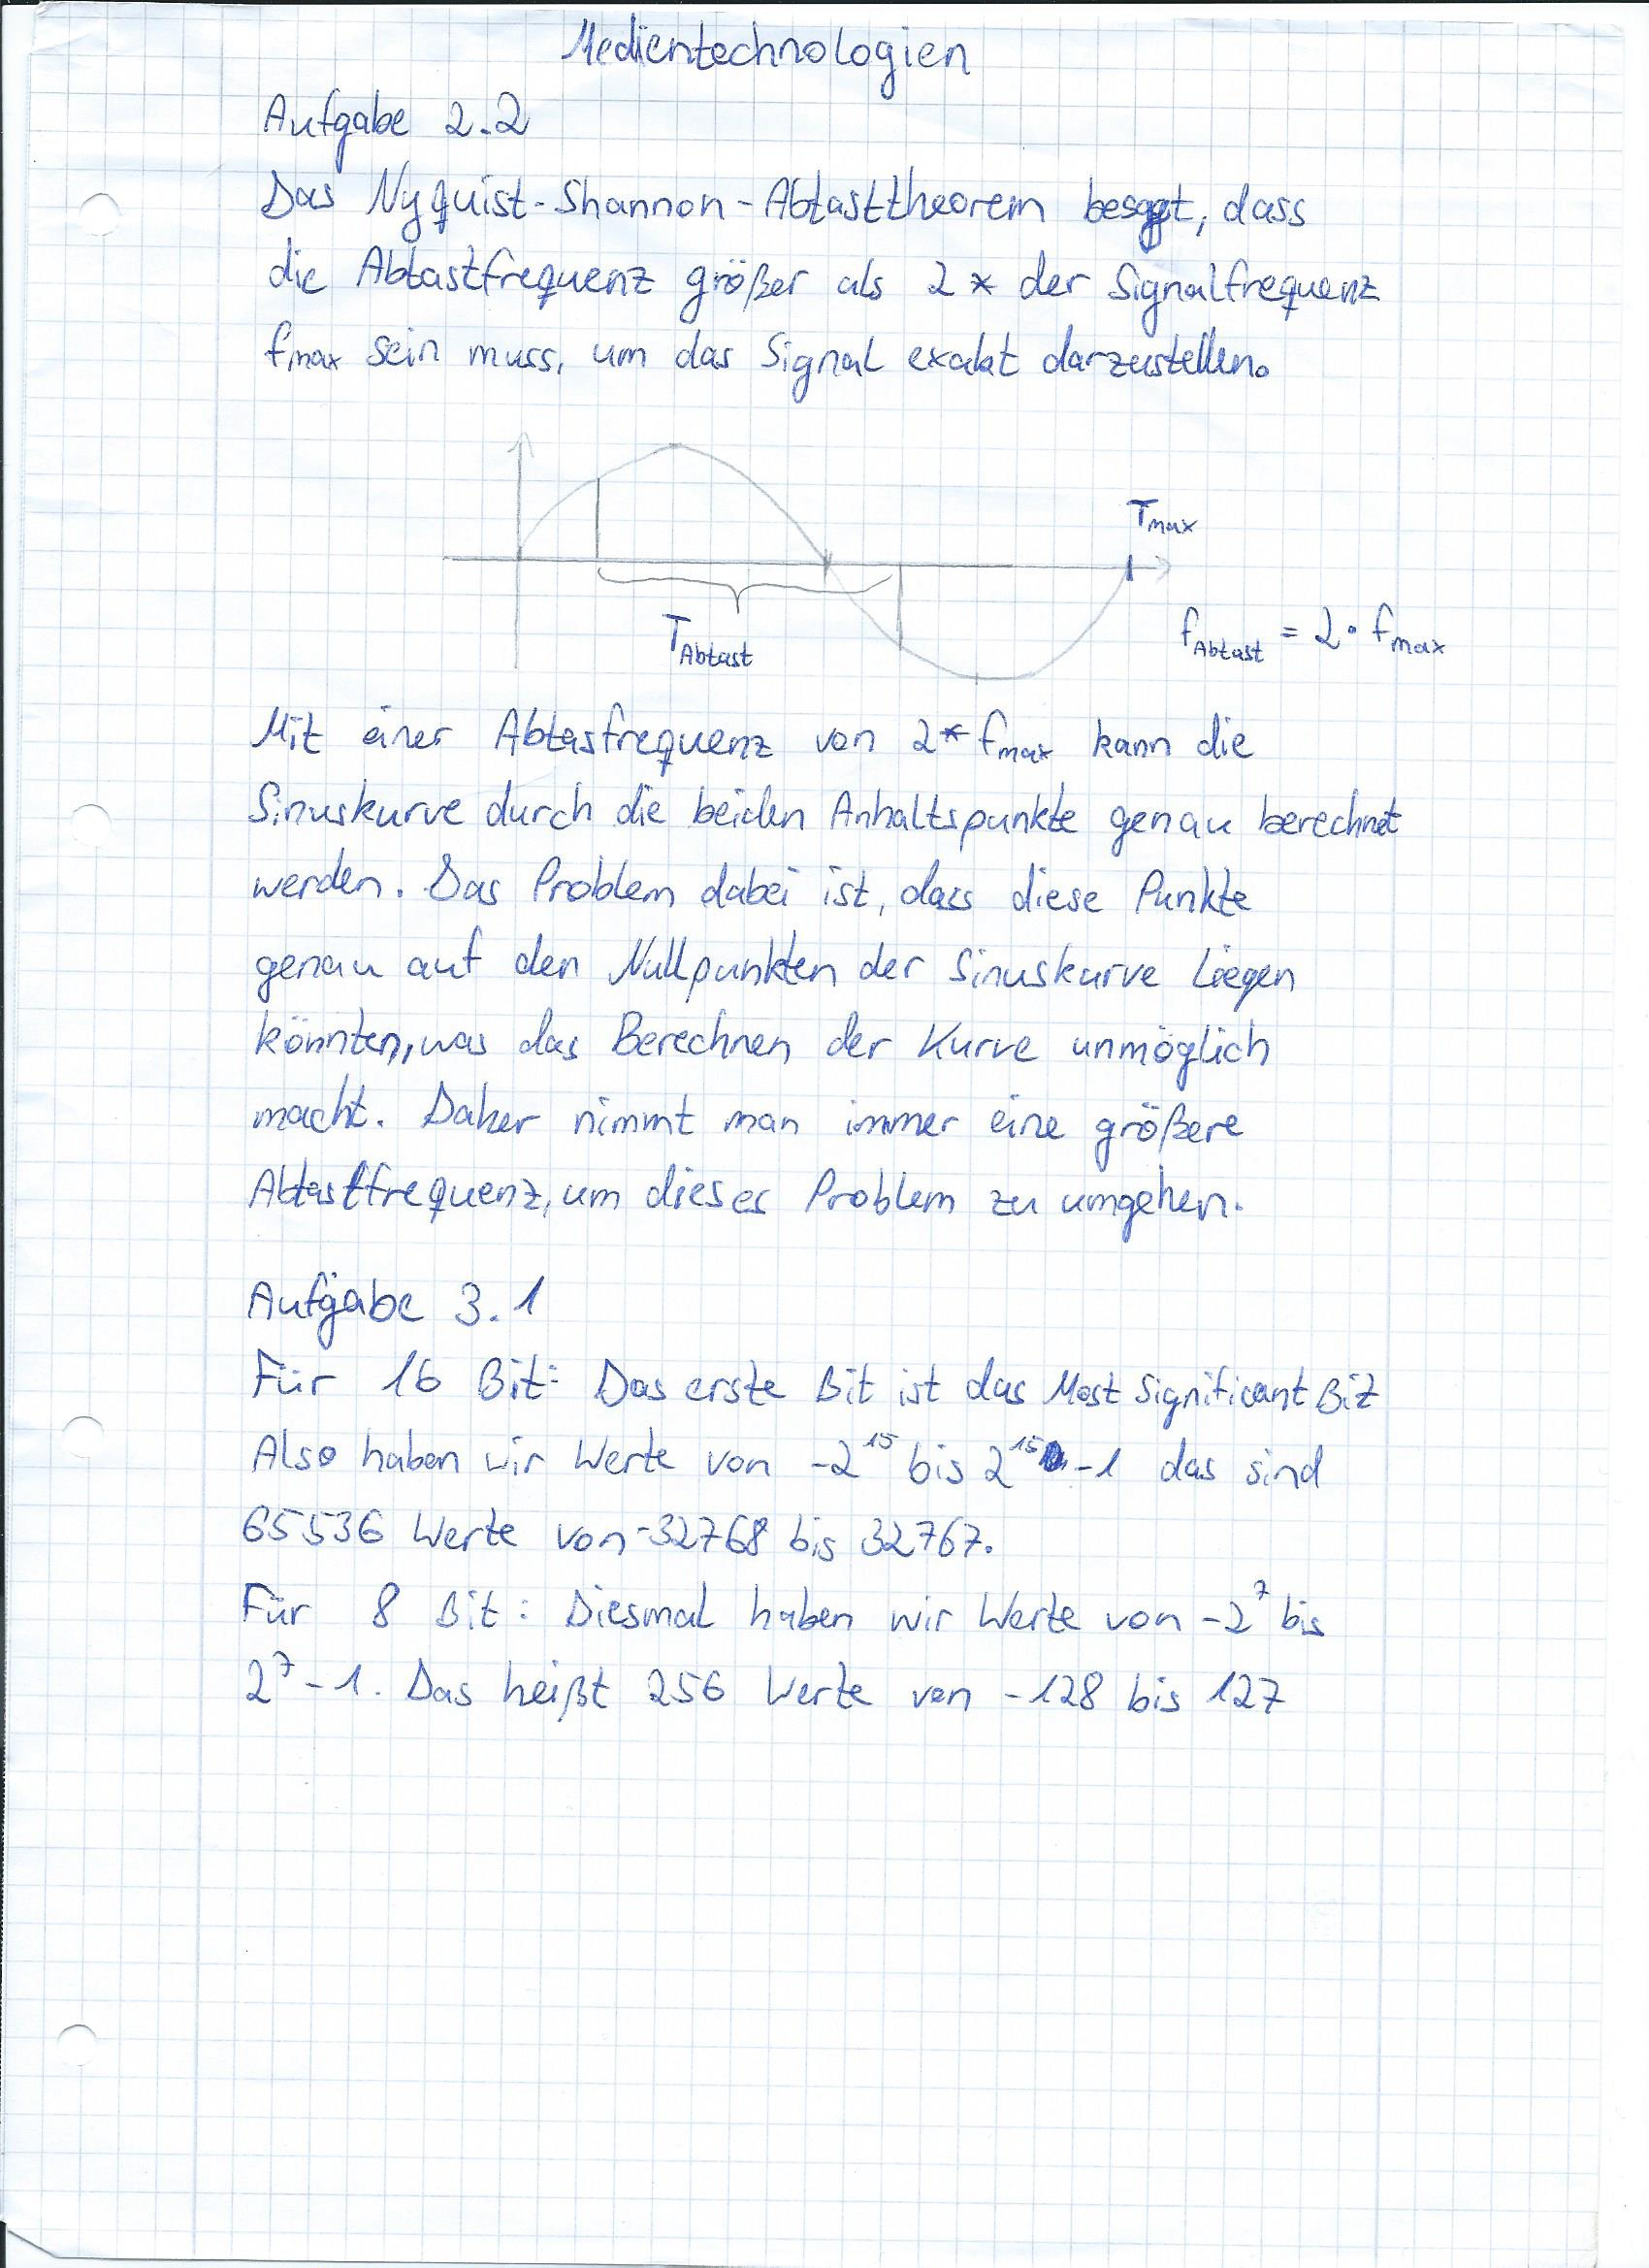 Medientechnologien
Aufgabe 2.2
Das Nyquist-Shannon-Abtasttheorem besagt, dass
die Abtastfrequenz größer als 2 * der Signalfrequenz
fmax sein muss, um das Signal exakt darzustellen.
Tmax
TAbtast
fAbtast = 2 · fmax
Mit einer Abtasfrequenz von 2* fmax kann die
Sinuskurve durch die beiden Anhaltspunkte genau berechnet
werden. Das Problem dabei ist, dass diese Punkte
genau auf den Nullpunkten der Sinuskurve liegen
könnten, was das Berechnen der Kurve unmöglich
macht. Daher nimmt man immer eine größere
Abtastfrequenz, um dieses Problem zu umgehen.
Aufgabe 3.1
Für 16 Bit: Das erste Bit ist das Most Significant Bit
Also haben wir Werte von -2^15 bis 2^15 -1 das sind
65536 Werte von -32768 bis 32767.
Für 8 Bit: Diesmal haben wir Werte von -2^7 bis
2^7 - 1. Das heißt 256 Werte von -128 bis 127